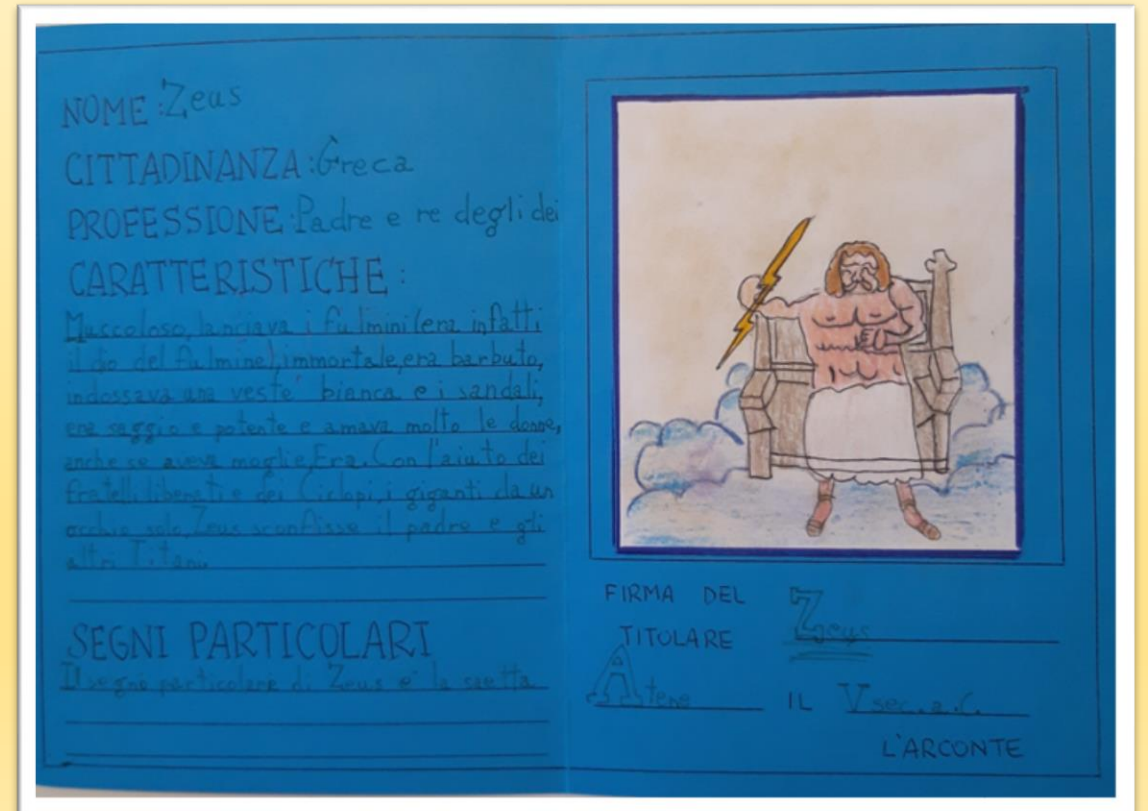 NOME: Zeus
CITTADINANZA: Greca
PROFESSIONE: Padre e re degli dei
CARATTERISTICHE:
Muscoloso, lanciava i fulmini (era infatti
il dio del fulmine), immortale, era barbuto,
indossava una veste bianca e i sandali,
era saggio e potente e amava molto le donne,
anche se aveva moglie, Era. Con l'aiuto dei
fratelli liberati e dei Ciclopi, i giganti da un
occhio solo, Zeus sconfisse il padre e gli
altri Titani.
SEGNI PARTICOLARI
Il segno particolare di Zeus è la saetta
FIRMA DEL Zeus
TITOLARE
Atene IL V sec. a.C.
L'ARCONTE